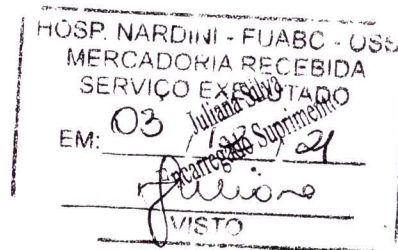 HOSP. NARDINI - FUABC - OSS
MERCADORIA RECEBIDA
SERVIÇO EXECUTADO
Juliana Silva
Encarregado Suprimento
EM: 03 / / 21
Juliana
VISTO